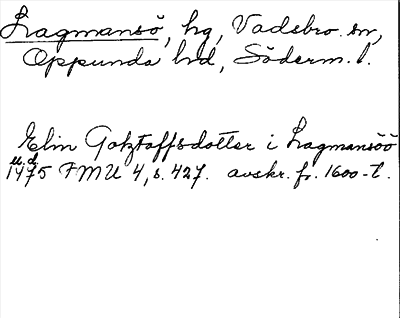 Lagmansö, hg, Vadsbro sn,
Oppunda hd, Söderm. l.
Elin Gotztaffsdotter i Lagmansöö
u.d.
1475 FMU 4, s. 427. avskr. fr. 1600-t.